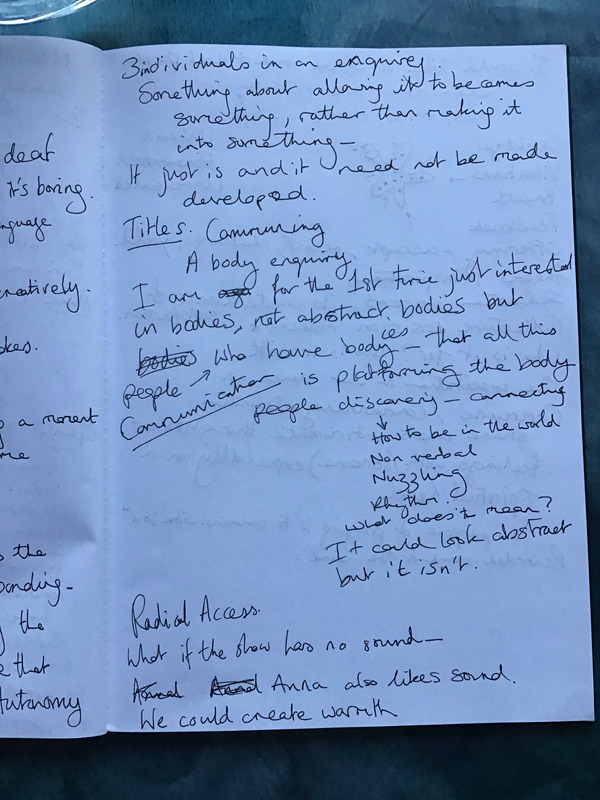 deaf
it's boring.
nguage
creatively.
okes.
a moment
the
ponding -
the
e that
Autonomy
3 individuals in an enquirey.
Something about allowing it to becomes
something, rather than making it
into something -
It just is and it need not be made
developed.
Titles. Communing
A body enquiry
I am for the 1st time just interested
in bodies, not abstract bodies but
bodies who have bodyces - that all this
people → is platforming the body
Communication people discovery - connecting
↓
How to be in the world
Non verbal
Nuzzling
Rhythm.
what does it mean?
It could look abstract
but it isn't.
Radical Access.
What if the show has no sound -
Anna also likes sound.
We could create warmth